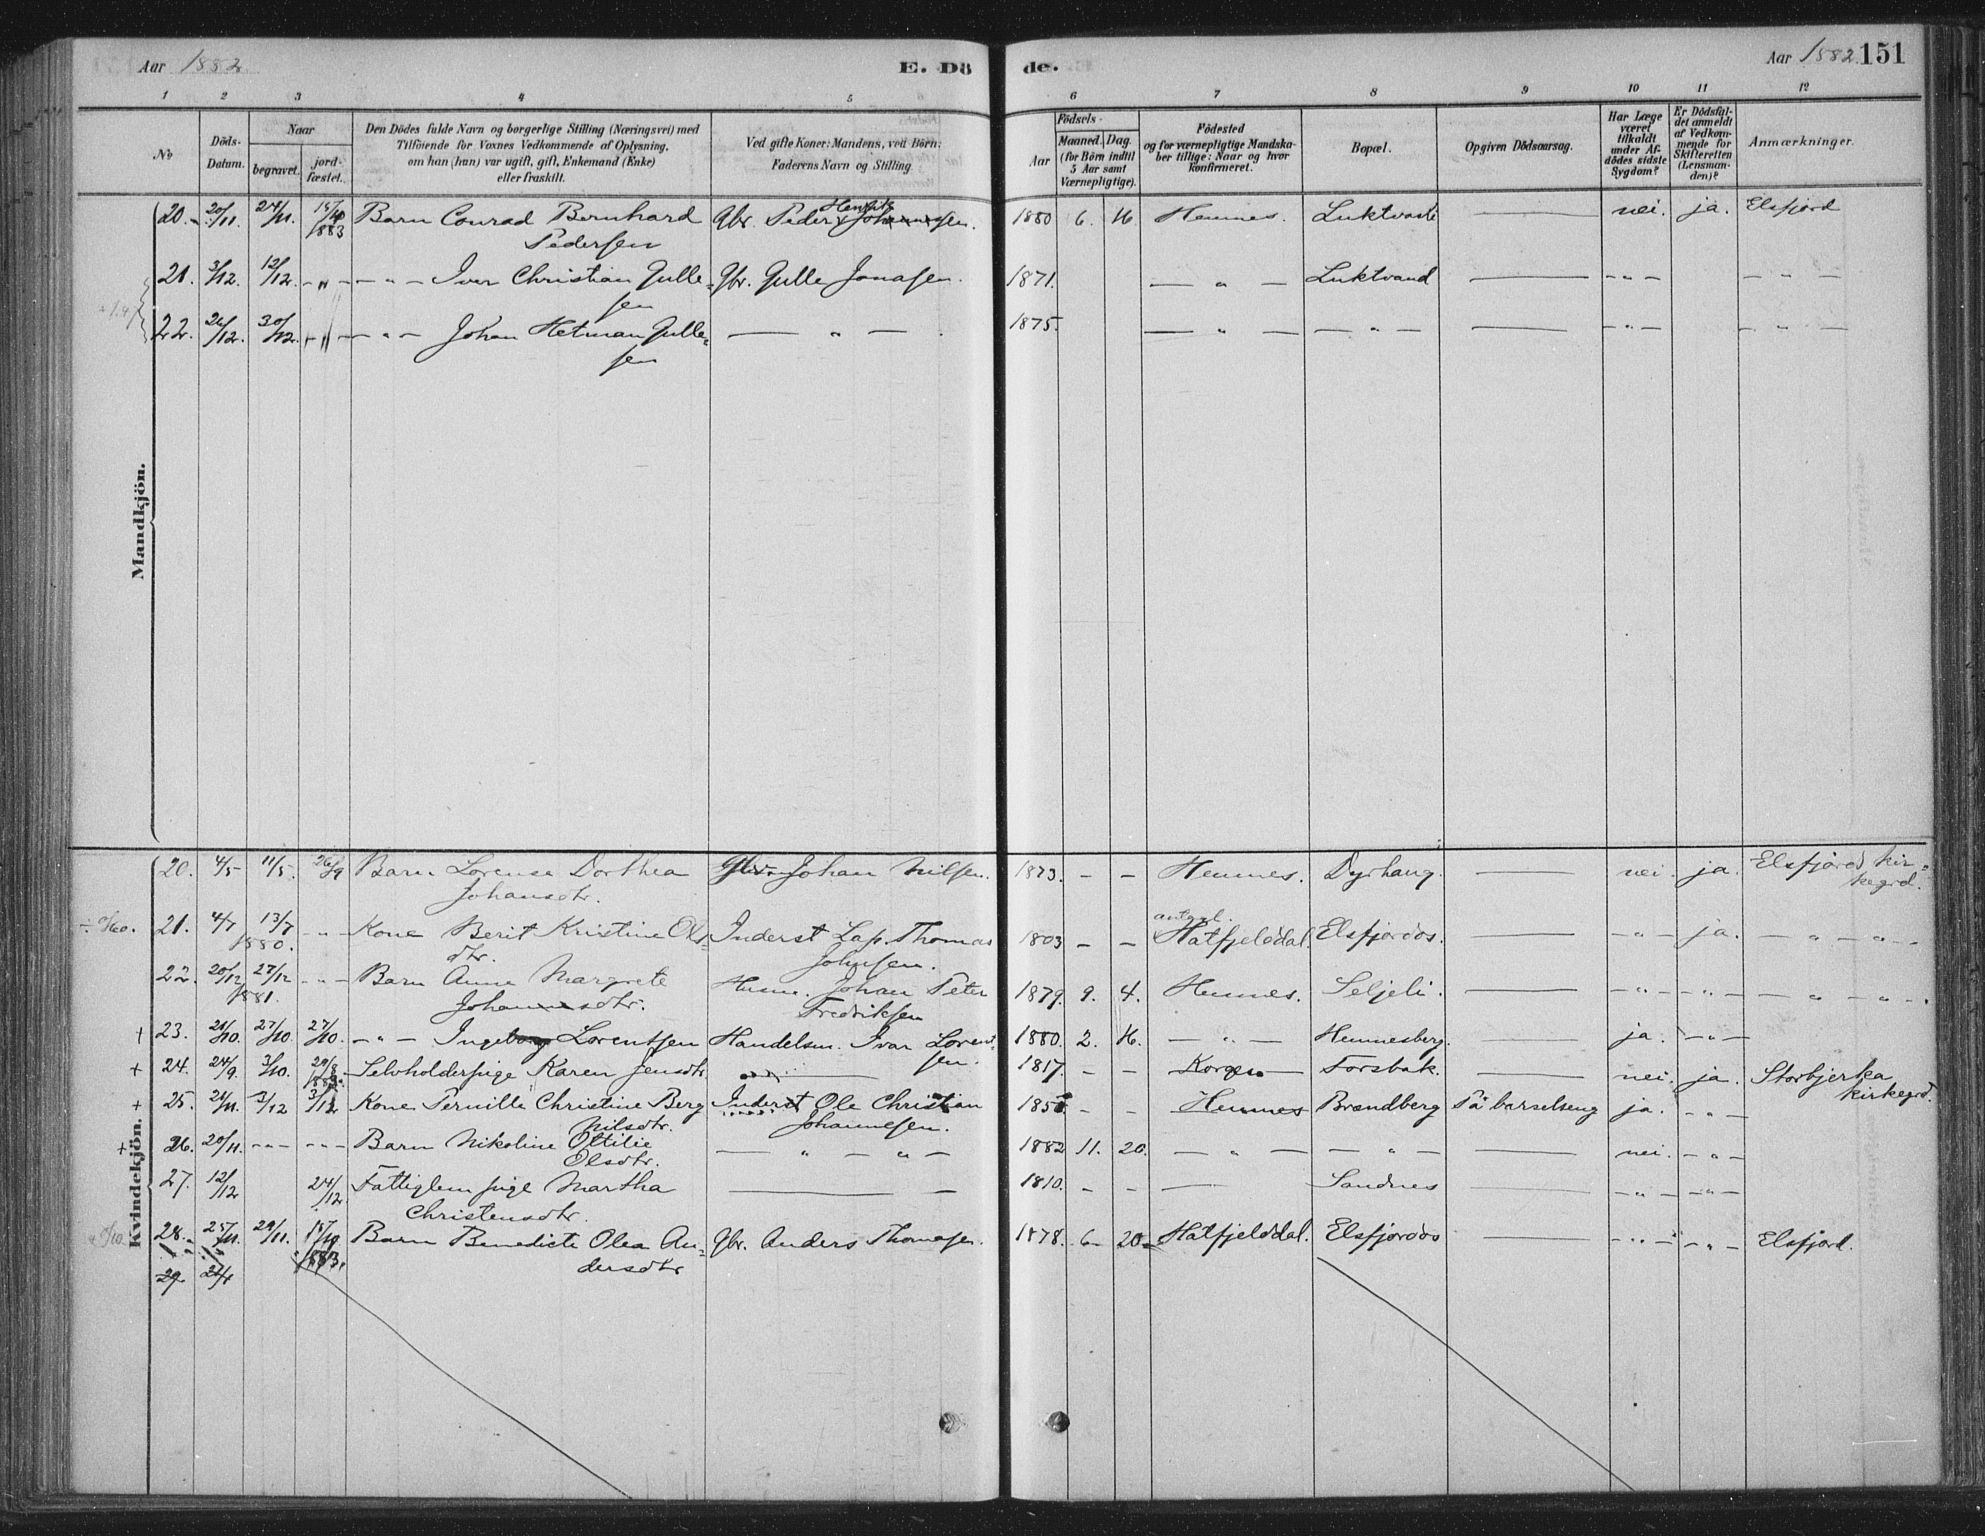 Aar 1882 E. Dö de. Aar 1882 151
1 2 3 4 5 6 7 8 9 10 11 12
No
Döds-Datum.
Naar
begravet.
jord-fæstet.
Den Dödes fulde Navn og borgerlige Stilling (Næringsvei) med
Tilföiende for Voxnes Vedkommende af Oplysning,
om han (hun) var ugift, gift, Enkemand (Enke)
eller fraskilt.
Ved gifte Koner: Mandens, ved Börn:
Faderens Navn og Stilling.
Födsels-
Aar
Maaned. Dag.
(for Börn indtil
5 Aar samt
Værnepligtige).
Födested
og for værnepligtige Mandska-
ber tillige: Naar og hvor
konfirmeret.
Bopæl.
Opgiven Dödsaarsag.
Har Læge
været
tilkaldt
under Af-
dödes sidste
Sygdom?
Er Dödsfal-
det anmeldt
af Vedkom-
mende for
Skifteretten
(Lensman-
den)?
Anmærkninger.
Mandkjön.
20. 20/11. 24/11. 15/4 1883 Barn Conrad Bernhard Gbr. Peder 1880 6. 16 Hemnes. nei. ja. Elsfjord
Pedersen
21. 3/12. 12/12. - " - - " - Iver Christian Gulle- Gbr. Gulle Jonasen. 1871. - " - Luktvand - " - - " -
sen
22. 26/12. 30/12. - " - - " - Johan Hetman Gulle- - " - 1875. - " - - " - - " - - " -
sen
Kvindekjön.
20. 4/5 11/5. 26/9 Barn Lorense Dorthea Johan Nilsen. 1873. - - Hemnes. Dyrhaug. nei. ja. Elsfjord kir-
Johansdtr. kegrd.
21. 4/7 13/7 - " - Kone Berit Kristine Ols- Inderst Lap. Thomas 1803 - - Hatfjelddal. Elsfjordos. - " - ja. - " - " -
1880. dtr. Johnsen.
22. 20/12 27/12 - " - Barn Anne Margrete Husm. Johan Peter 1879. 9. 4. Hemnes. Seljeli. - " - - " - - " - " -
1881. Johannesdtr. Fredriksen
+ 23. 21/10. 27/10. 27/10. - " - Ingeborg Lorentsen Handelsm. Ivar Lorent- 1880. 2. 16. - " - Hemnesberg. ja. - " -
sen.
+ 24. 24/9. 3/10. Selvholderpige Karen Jensdtr. 1817. - - Korgen Forsbak. nei. ja. Storbjerka
kirkegrd.
+ 25. 24/11. 3/12 3/12 Kone Pernille Christine Berg Inderst Ole Christian - - Hemnes Brændberg På barselseng ja. - " -
Nilsdtr. Johannesen.
+ 26. 20/11. - " - - " - Barn Nikoline Ottilie - " - " - 1882 11. 20. - " - - " - nei. - " -
Olsdtr.
27. 12/12 24/12. Fattiglem pige Martha 1810. - - Sandnes - " - - " -
Christensdtr.
28. 25/11. 29/11. Barn Benedicte Olea An- Gbr. Anders Thomasen. 1878. 6 20 Hatfjelddal. Elsfjordos - " - - " - Elsfjord.
1883. dersdtr
29.